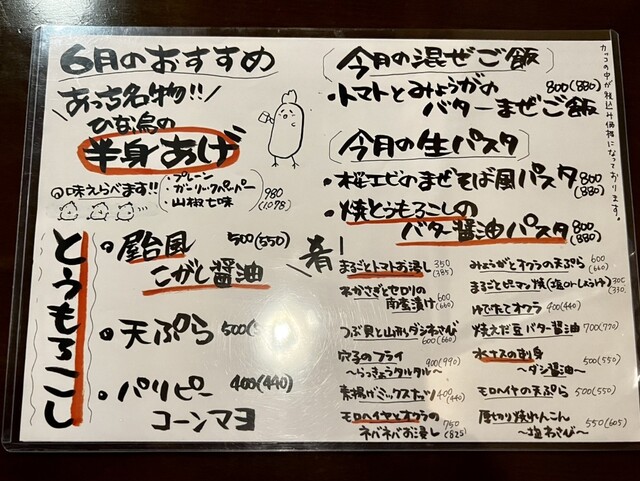 6月のおすすめ
あっち名物!!
ひな鳥の
半身あげ
味えらべます!!
・プレーン
・ガーリックペッパー
・山椒七味
980
(1,078)
とうもろこし
屋台風 500(550)
こがし醤油
天ぷら 500(550)
パリピー 400(440)
コーンマヨ
今月の混ぜご飯
・トマトとみょうがの 800(880)
バターまぜご飯
今月の生パスタ
・桜エビのまぜそば風パスタ 800
(880)
・焼とうもろこしの
バター醤油パスタ 800
(880)
カッコの中が税込み価格になっております。
肴
まるごとトマトお浸し 350
(385)
わかさぎとセロリの
南蛮漬け 600
(660)
つぶ貝と山形ダシわさび
600(660)
穴子のフライ 900(990)
〜らっきょうタルタル〜
素揚げミックスナッツ 400
(440)
モロヘイヤとオクラの 750
ネバネバお浸し (825)
みょうがとオクラの天ぷら 600
(660)
まるごとピーマン焼(塩orしょうゆ) 300
(330)
ゆでたてオクラ 400(440)
焼えだ豆バター醤油 700(770)
水ナスの刺身 500(550)
〜ダシ醤油〜
モロヘイヤの天ぷら 500(550)
厚切り焼れんこん 550(605)
〜塩わさび〜